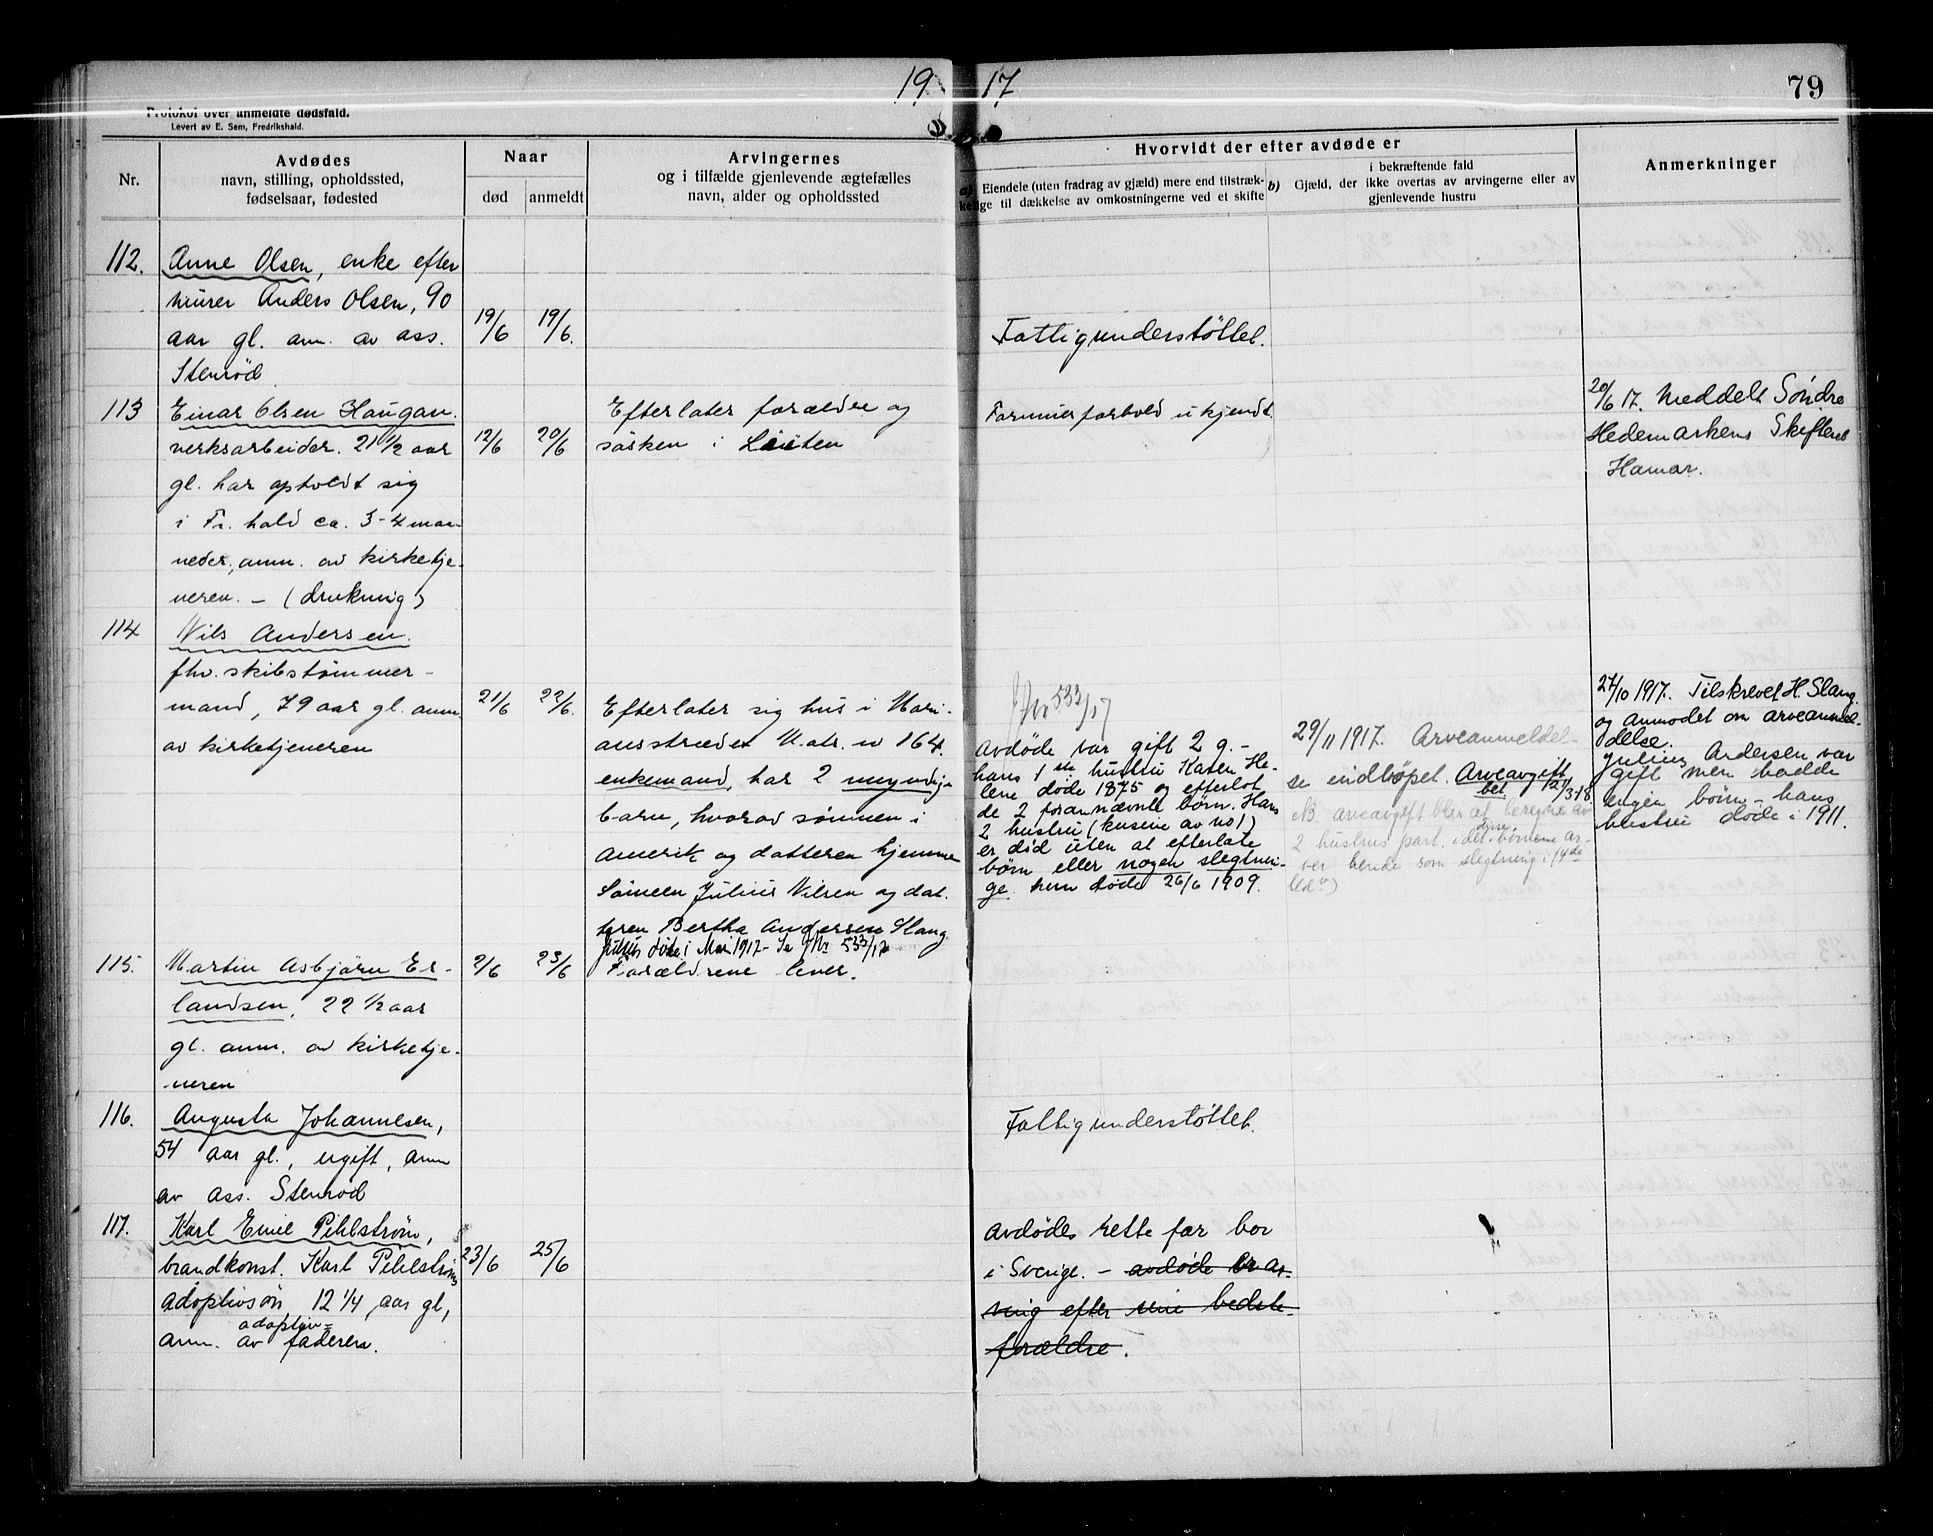 19 17
79
Protokol over anmeldte dødsfald.
Levert av E. Sem, Fredrikshald.
Nr.
Avdødes
navn, stilling, opholdssted,
fødselsaar, fødested
Naar
død
anmeldt
Arvingernes
og i tilfælde gjenlevende ægtefælles
navn, alder og opholdssted
Hvorvidt der efter avdøde er
a) Eiendele (uten fradrag av gjæld) mere end tilstræk-
kelige til dækkelse av omkostningerne ved et skifte
b)
i bekræftende fald
Gjæld, der ikke overtas av arvingerne eller av
gjenlevende hustru
Anmerkninger
112.
Anne Olsen, enke efter
murer Anders Olsen, 90
aar gl. anm. av ass.
Stenrød
19/6
19/6.
Fattigunderstøttet.
113
Einar Olsen Haugan.
verksarbeider. 21 1/2 aar
gl. har opholdt sig
i Fr.hald ca. 3-4 maa-
neder, anm. av kirketje-
neren. - (drukning)
12/6
20/6
Efterlater forældre og
søsken i Løiten
Formuesforhold ukjendt
20/6 17. Meddelt Søndre
Hedemarkens Skifteret
Hamar.
114
Nils Andersen.
fhv. skibstømmer-
mand, 79 aar gl. anm.
av kirketjeneren
21/6
22/6.
Efterlater sig hus i Mari-
anstrædet Matr. n 164.
enkemand, har 2 myndige
barn, hvorav sønnen i
Amerik og datteren hjemme
Sønnen Julius Nilsen og dat-
teren Bertha Andersen Slang
Julius døde i Mai 1917 - Se JNr 533/17
JNr 533/17
Avdøde var gift 2 g. -
hans 1ste hustru Karen He-
lene døde 1875 og efterlot
de 2 forannævnte børn. Hans
2 hustru (kusine av no 1)
er død uten at efterlate
børn eller nogen slegtnin-
ge. hun døde 26/6 1909.
29/11 1917. Arveanmeldel-
se indkøpet. Arveavgift
bet. 12/3 18.
NB. arveavgift blir at beregne av
2 hustrus part. idet disse børnene ar-
ver hende som slegtning i (4de
led)
27/10 1917. Tilskrevet H. Slang
og anmodet om arveanmel-
delse.
Julius Andersen var
gift men hadde
ingen børn - hans
hustru døde i 1911.
115.
Martin Asbjørn Er-
landsen, 22 1/2 aar
gl. anm. av kirketje-
neren
2/6
23/6
Forældrene lever.
116.
Augusta Johannesen,
54 aar gl., ugift, anm
av ass. Stenrød
Fattigunderstøttet.
117.
Karl Emil Pihlstrøm,
brandkonst. Karl Pihlstrøms
adoptivsøn, 12 1/4 aar gl,
anm. av adoptiv=faderen.
23/6
25/6
Avdødes rette far bor
i Sverige. - avdøde er ar-
ving efter sine bedste-
forældre.